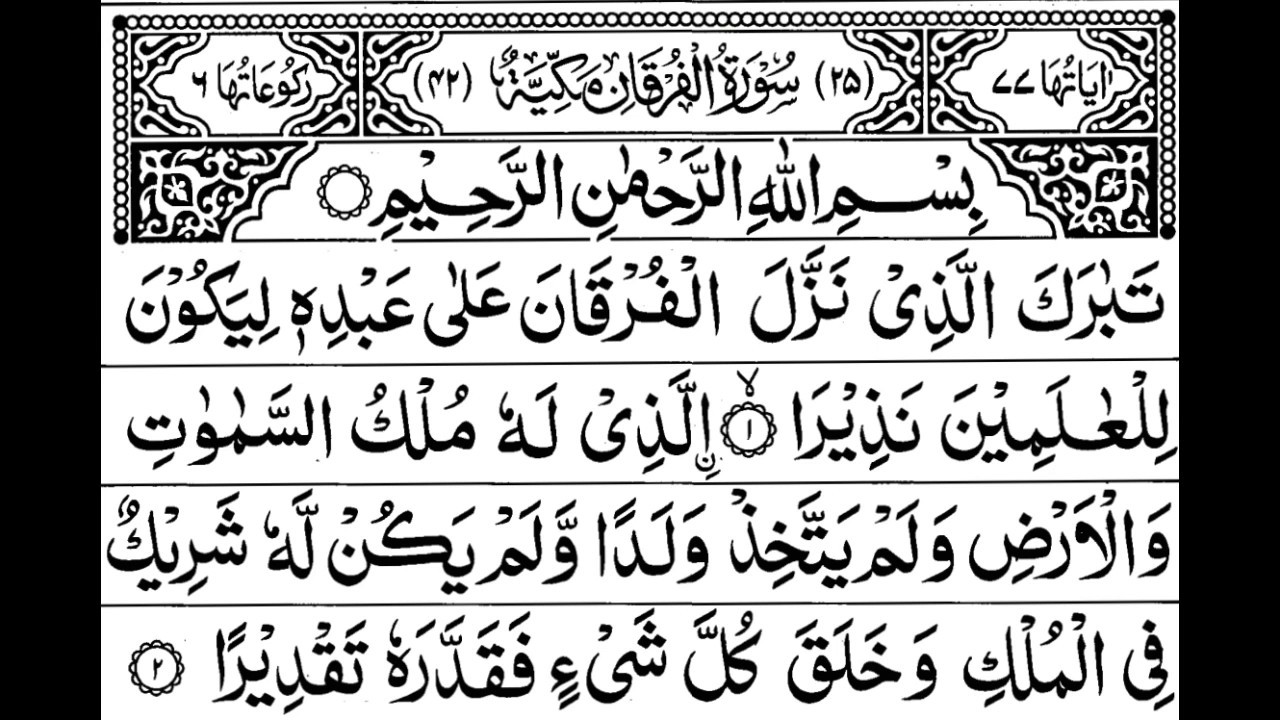 اٰيَاتُهَا ٧٧ (٢٥) سُوْرَةُ الْفُرْقَانِ مَكِّيَّةٌ (٤٢) رُكُوْعَاتُهَا ٦
بِسْمِ اللّٰهِ الرَّحْمٰنِ الرَّحِيْمِ
تَبٰرَكَ الَّذِيْ نَزَّلَ الْفُرْقَانَ عَلٰى عَبْدِهٖ لِيَكُوْنَ
لِلْعٰلَمِيْنَ نَذِيْرَا ۙ‏ ١ ۨالَّذِيْ لَهٗ مُلْكُ السَّمٰوٰتِ
وَالْاَرْضِ وَلَمْ يَتَّخِذْ وَلَدًا وَّلَمْ يَكُنْ لَّهٗ شَرِيْكٌ
فِي الْمُلْكِ وَخَلَقَ كُلَّ شَيْءٍ فَقَدَّرَهٗ تَقْدِيْرًا ٢